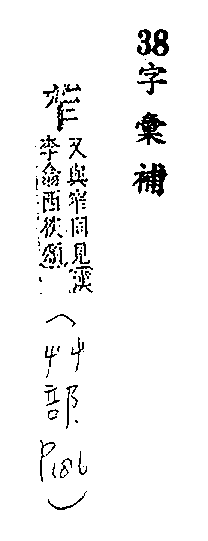 38字彙補
苲
又與窄同見漢
李翕西狹頌
(艸部.P186)